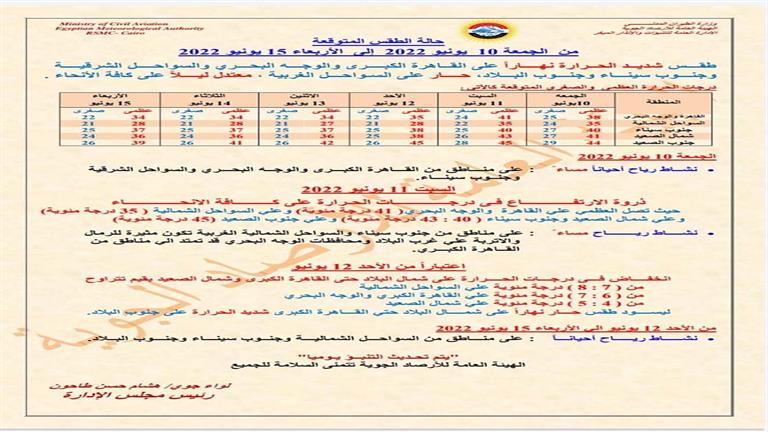 Ministry of Civil Aviation
Egyptian Meteorological Authority
RSMC- Cairo
وزارة الطيران المدنـــي
الهيئة العامة للأرصاد الجوية
الإدارة العامة للتنبؤات والإنذار المبكر
حالة الطقس المتوقعة
من الجمعة 10 يونيو 2022 إلى الأربعاء 15 يونيو 2022
طقس شديد الحرارة نهاراً على القاهرة الكبرى والوجه البحري والسواحل الشرقية
وجنوب سيناء وجنوب البلاد، حار على السواحل الغربية ، معتدل ليلاً على كافة الأنحاء .
درجات الحرارة العظمى والصغرى المتوقعة كالآتى:
المنطقة الجمعه 10 يونيو السبت 11 يونيو الأحد 12 يونيو الاثنين 13 يونيو الثلاثاء 14 يونيو الأربعاء 15 يونيو
عظمى صغرى عظمى صغرى عظمى صغرى عظمى صغرى عظمى صغرى عظمى صغرى
القاهرة والوجه البحري 38 25 41 24 34 22 35 22 34 22 34 22
السواحل الشمالية 35 24 35 22 28 21 27 21 28 21 28 21
جنوب سيناء 40 27 40 27 38 25 37 25 37 25 37 25
شمال الصعيد 41 26 43 27 38 25 36 24 36 24 36 24
جنوب الصعيد 44 29 45 28 45 26 42 26 41 26 39 26
الجمعة 10 يونيو 2022
- نشاط رياح أحياناً مساءً : على مناطق من القاهرة الكبرى والوجه البحري والسواحل الشرقية
وجنوب سيناء.
السبت 11 يونيو 2022
ذروة الارتفــاع فى درجــات الحرارة على كــافة الأنحــاء
حيث تصل العظمي علي القاهرة والوجه البحري( 41 درجة منوية) وعلي السواحل الشمالية ( 35 درجة منوية)
وعلي شمال الصعيد وجنوب سيناء ( 40 : 43 درجة منوية) وعلي جنوب الصعيد (45 درجة منوية)
- نشاط ريــاح مساءً : على مناطق من جنوب سيناء والسواحل الشمالية الغربية تكون مثيرة للرمال
والاتربة علي غرب البلاد ومحافظات الوجه البحري قد تمتد الي مناطق من
القاهرة الكبرى.
إعتباراً من الأحد 12 يونيو
انخفاض في درجات الحرارة على شمال البلاد حتى القاهرة الكبرى وشمال الصعيد بقيم تتراوح
من ( 7 : 8 ) درجة منوية علي السواحل الشمالية
من ( 6 : 7 ) درجة منوية علي القاهرة الكبري والوجه البحري
من ( 4 : 5 ) درجة منوية علي شمال الصعيد
ليسود طقس حار نهاراً على شمال البلاد حتي القاهرة الكبرى شديد الحرارة على جنوب البلاد.
من الأحد 12 يونيو الى الأربعاء 15 يونيو 2022
- نشاط رياح أحياناً : على مناطق من السواحل الشمالية وجنوب سيناء وجنوب البلاد.
"يتم تحديث التنبؤ يومياً"
الهيئة العامة للأرصاد الجوية تتمنى السلامة للجميع
لواء جوى/ هشام حسن طاحون
رئيس مجلس الإدارة